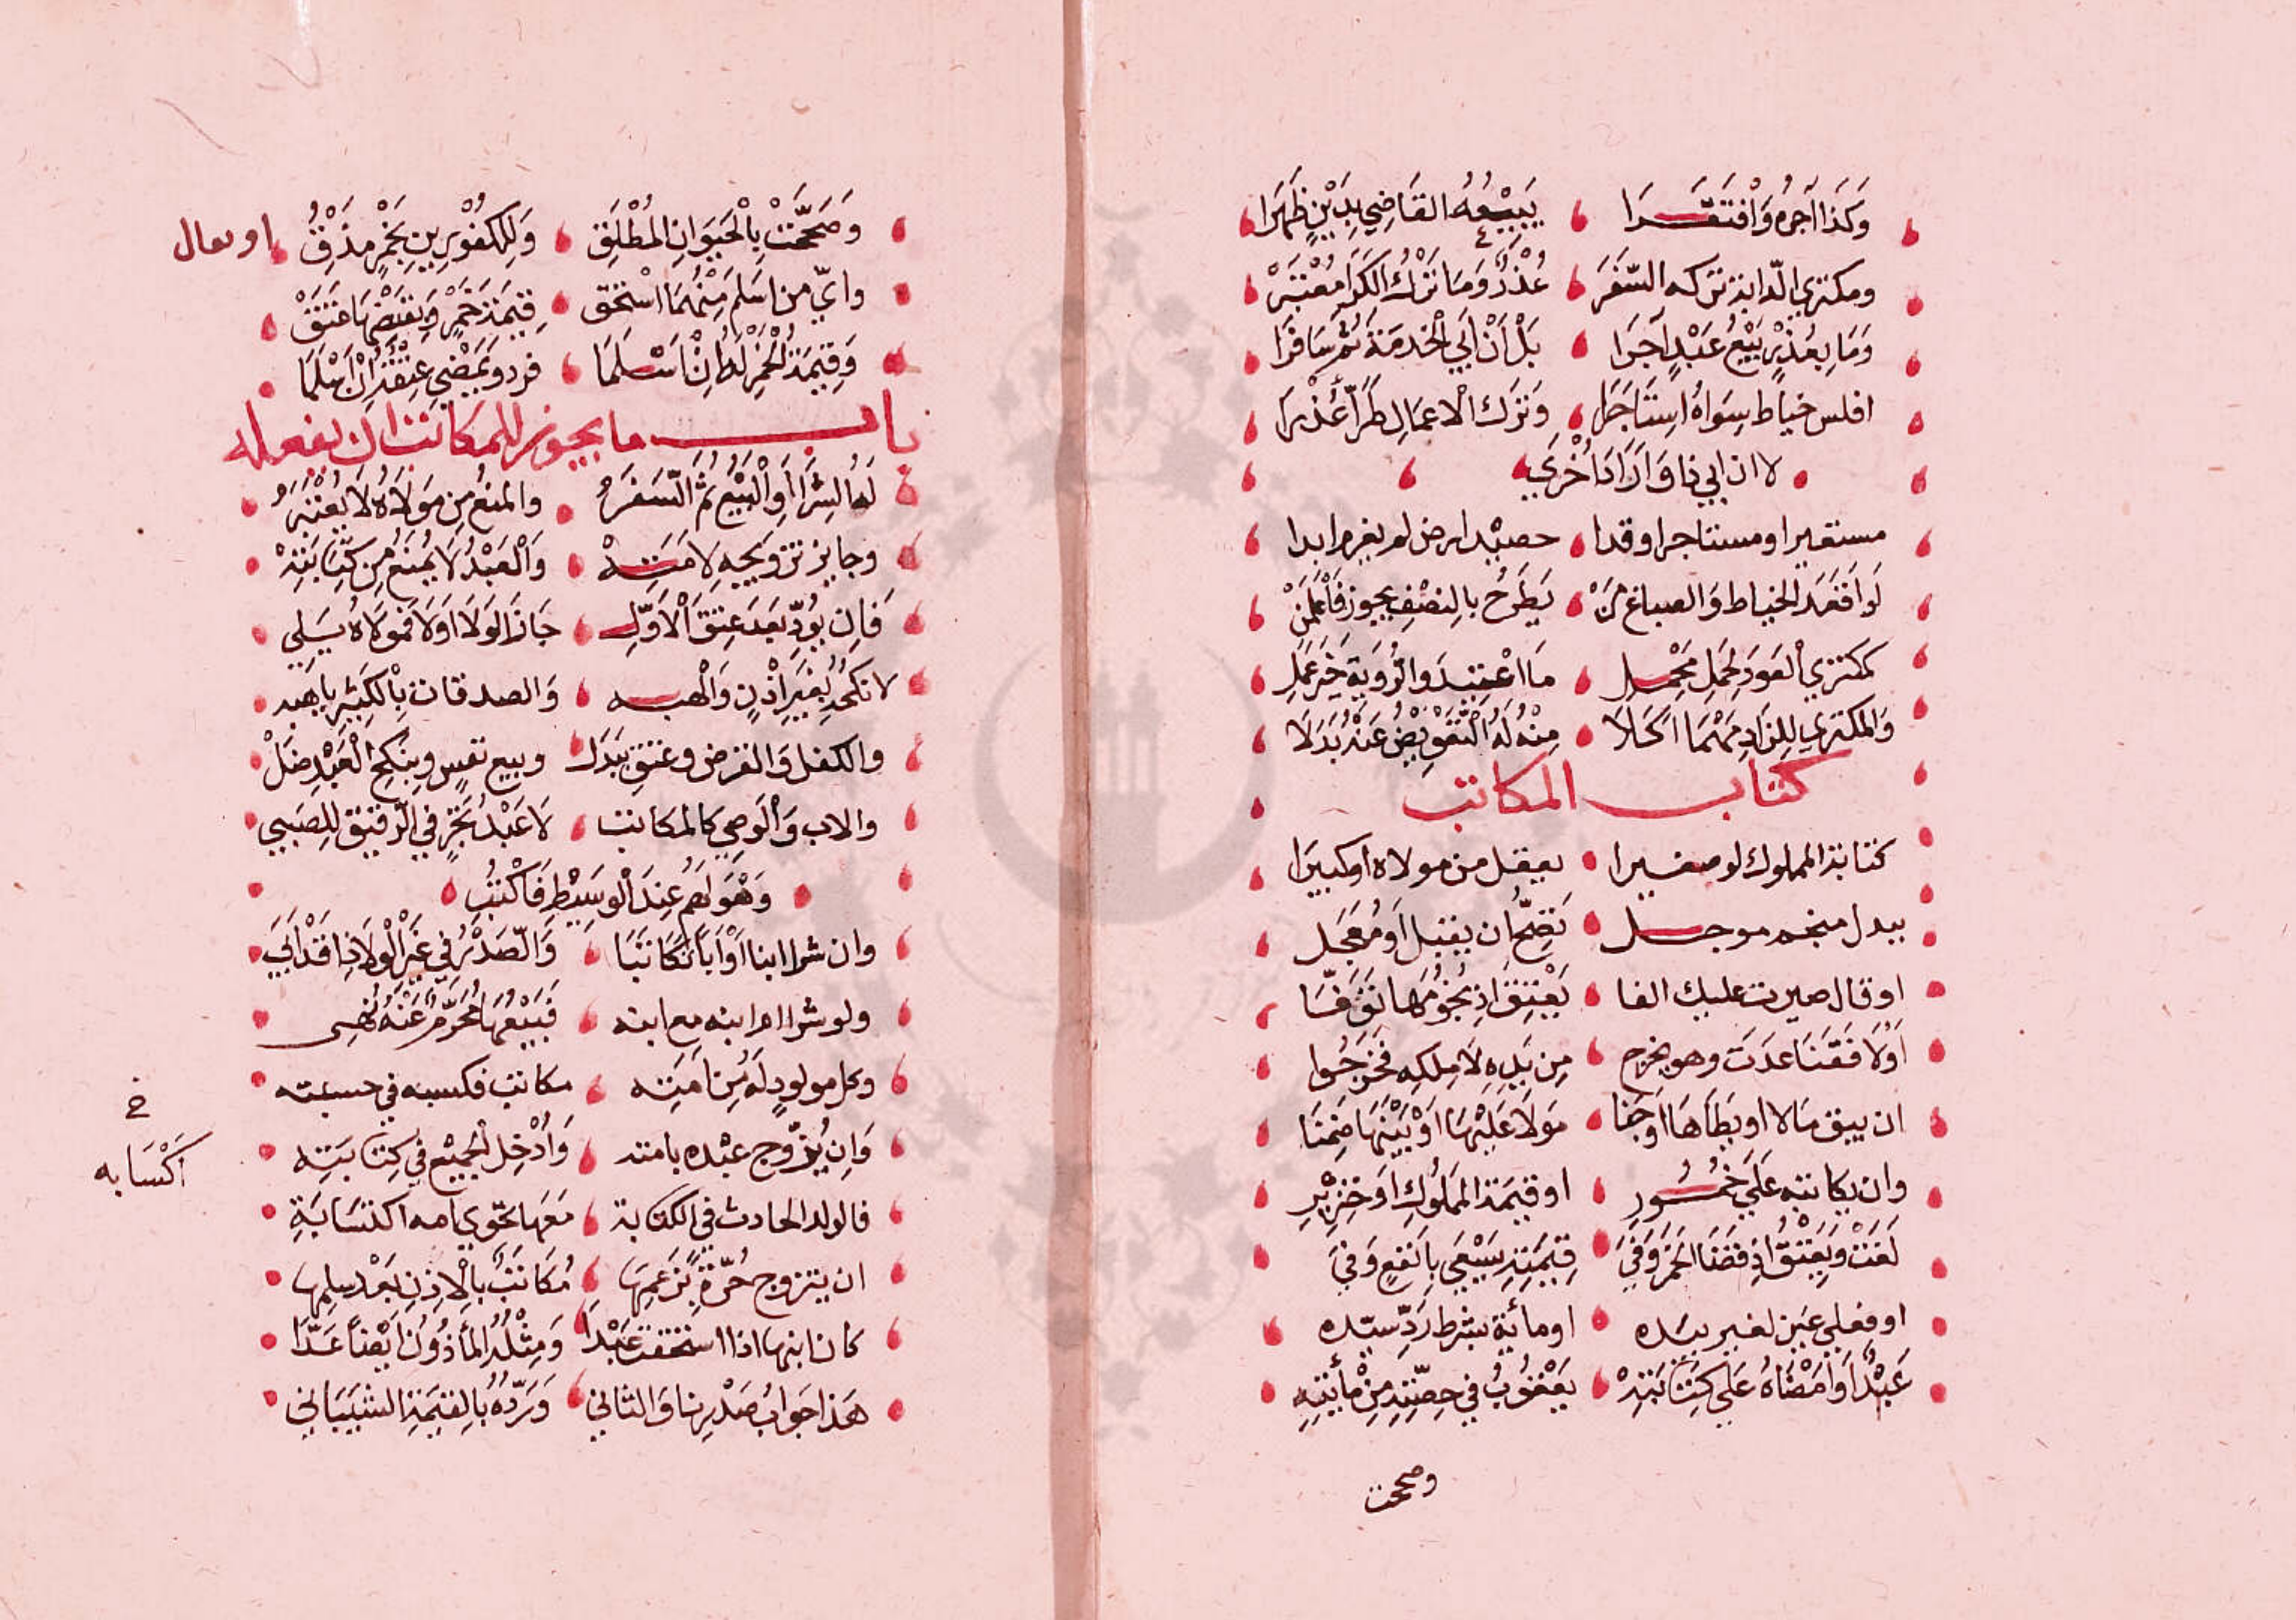 وَكَذَا آجره وَافْتَقَرَا يَبِيعُهُ القَاضِي بِدَيْنٍ ظَهَرَا
ومكتري الدّابة تركه السَّفَرَ عُذْرٌ وَمَا تَرْكُ الكَرَا مُعْتَبَرْ
وَمَا بِعُذْرٍ بَيْعُ عَبْدٍ آجَرَا بَلْ أَنْ أَبَى الْخِدمَةَ ثُمَّ سَافَرَا
افلس خياط سِوَاهُ اسْتَاجَرَا وَتَرْك الاعمَالِ طَرَّا عُذْرَا
لا ان ابى ذا وَارَادَ أُخْرَى
مستقيرا او مستاجرا وقدا حصيْد ارض لم يغرم ابدا
لَو اقعَدَ الخياط وَالصباغ مَنْ يَطْرَحُ بالنصْفِ يجوز فَاعْلَمَنْ
كمكتري العَوَد لحَمْلِ مَحْمِل مَا اعْتِيْدَ وَالرُّويَة خَيْر عَمَلِ
وَالمكتري لِلزَادِ مَهْمَا اكَلَا مِنْهُ لَهُ التَّعْوِيْضُ عَنْهُ بَدَلَا
كتاب المكاتب
كتابة المملوك لو صغيرا يعقل من مولاه او كبيرَا
ببدل منجم موجل تَصِحُّ ان يقبل اَو مُعَجّل
او قال صيرت عليك الفا يَعْتِق اذ نُجُومُهَا تَوَفَّا
اَوْلَا فَقَنًّا عدَتَ وهو يخرج مِن يَدِهِ لَا مِلكِه فخَرجُوا
ان يبق مَالا او يطَاهَا او جَنَا مَوْلَا عَلَيْهَا اوْ بَنِيْهَا ضَمِنَا
وان يكاتبه عَلَى خُمُورِ او قيمَة المَملُوكِ اَو خِنْزِيْرِ
لَغَتْ وَيَعْتِقُ اذ قضَا الخَمْرَ وَفِي قِيْمَتِهِ سَيَسْعَى بِالنّفعِ وَفِي
او فعلى عَين لغير بيَده او مائة بشرط رَدِّ سيّده
عَبْدًا وَامْضَاهُ عَلَى كِتَابَتِهْ يَعْقُوْبُ فِي حِصَّتِهِ مِنْ مِأَتِهِ
وصححت
وَصَحَّحَتْ بِالْحَيَوَانِ المُطْلَقِ وَلِلكَفُوْرِينِ بِخَمْرٍ مذْقِ او يقال
واىّ من اسَلَم مِنْهُمَا اسْتحَق قِيْمَة خَمْرٍ وَبقَبْضِهَا عَتَقْ
وَقِيْمَة الْخَمْرِ لَهُ انْ اسْلَمَا فرد وَيَمْضِي عِتْقُهُ انْ اسْلَمَا
باب ما يجوز للمكاتب ان يفعله
لَهُ الشِّرَا اوِ الْبَيْع ثُمَّ السَّفَرُ والمنعُ مِن مَوْلَاهُ لَا يُعْتَبَرُ
وجايز تزويجه لِامَتِهْ وَالْعَبْدُ لَا يُمْنَعُ مِن كِتَابَتِهْ
فَاِن يُودّ بَعدَ عِتقِ الاَوّلِ جَازَ الوَلَا اَوْلَا فَمَولَاهُ يَلِي
لا نكحُهُ بغَيرِ اذْنٍ وَالْهبه وَالصدقات بِالْكَثِيْرِ ياهبه
والكفل وَالقرض وعتق ببَدَل وبيع نفسٍ وبنكح العَبْدِ ضَلْ
والاب وَالْوَصِي كَالمكاتب لَا عَبْدُ تَجْرٍ في الرّقيق للِصَبِي
وَهْوَ لَهُم عِندَ الْوسِيْطِ فَاكْتُبُ
وان شرا ابنا اَوْ اَبًا تكَاتَبَا وَالصّدْرُ في غَيْرِ الْوِلَا ذا قَدْ ابَى
ولو شرا ام ابنه مع ابنه فَبَيْعُهَا مُحَرَّمٌ عَنْهُ نُهِى
وكل مولودٍ لَهُ مِن امَتِه مكاتب فكسبه في حسبته
خ
اَكْسَابه
وَاِن يُزَوّج عبْده بامته وَادْخِل الجَمِيْع في كِتَابَتِه
فالولد الحادث في الكتابة مَعَهَا يحَوى امه اكتسَابَةِ
ان يتزوج حُرّةً بزَعمِهَا مُكَاتَبٌ بالْاِذنِ بَعْد سلمها
كان ابنها اذا استحقت عَبْدَا وَمِثْلُهُ المَأذُوْنُ ايْضًا عَدَّا
هَذا جَوَابُ صَدْرِنا وَالثاني وَرَدُّهُ بالِقيْمَةِ الشيَبَانِي